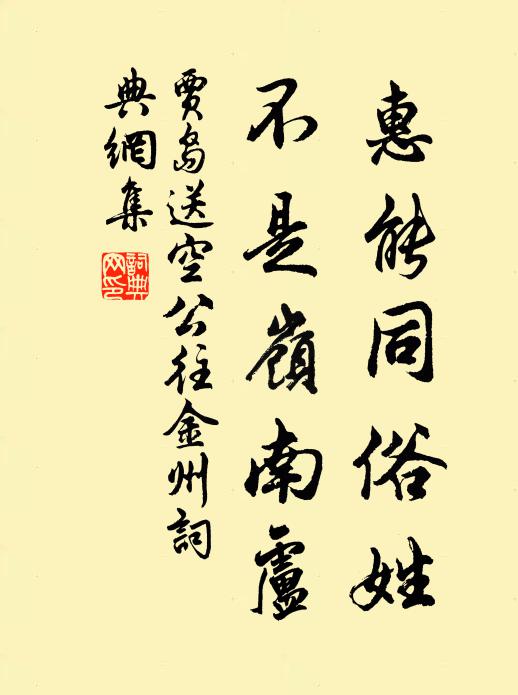 惠能同俗姓
不是嶺南盧
賈島送空公往金州詞
典網集
詞典
网印